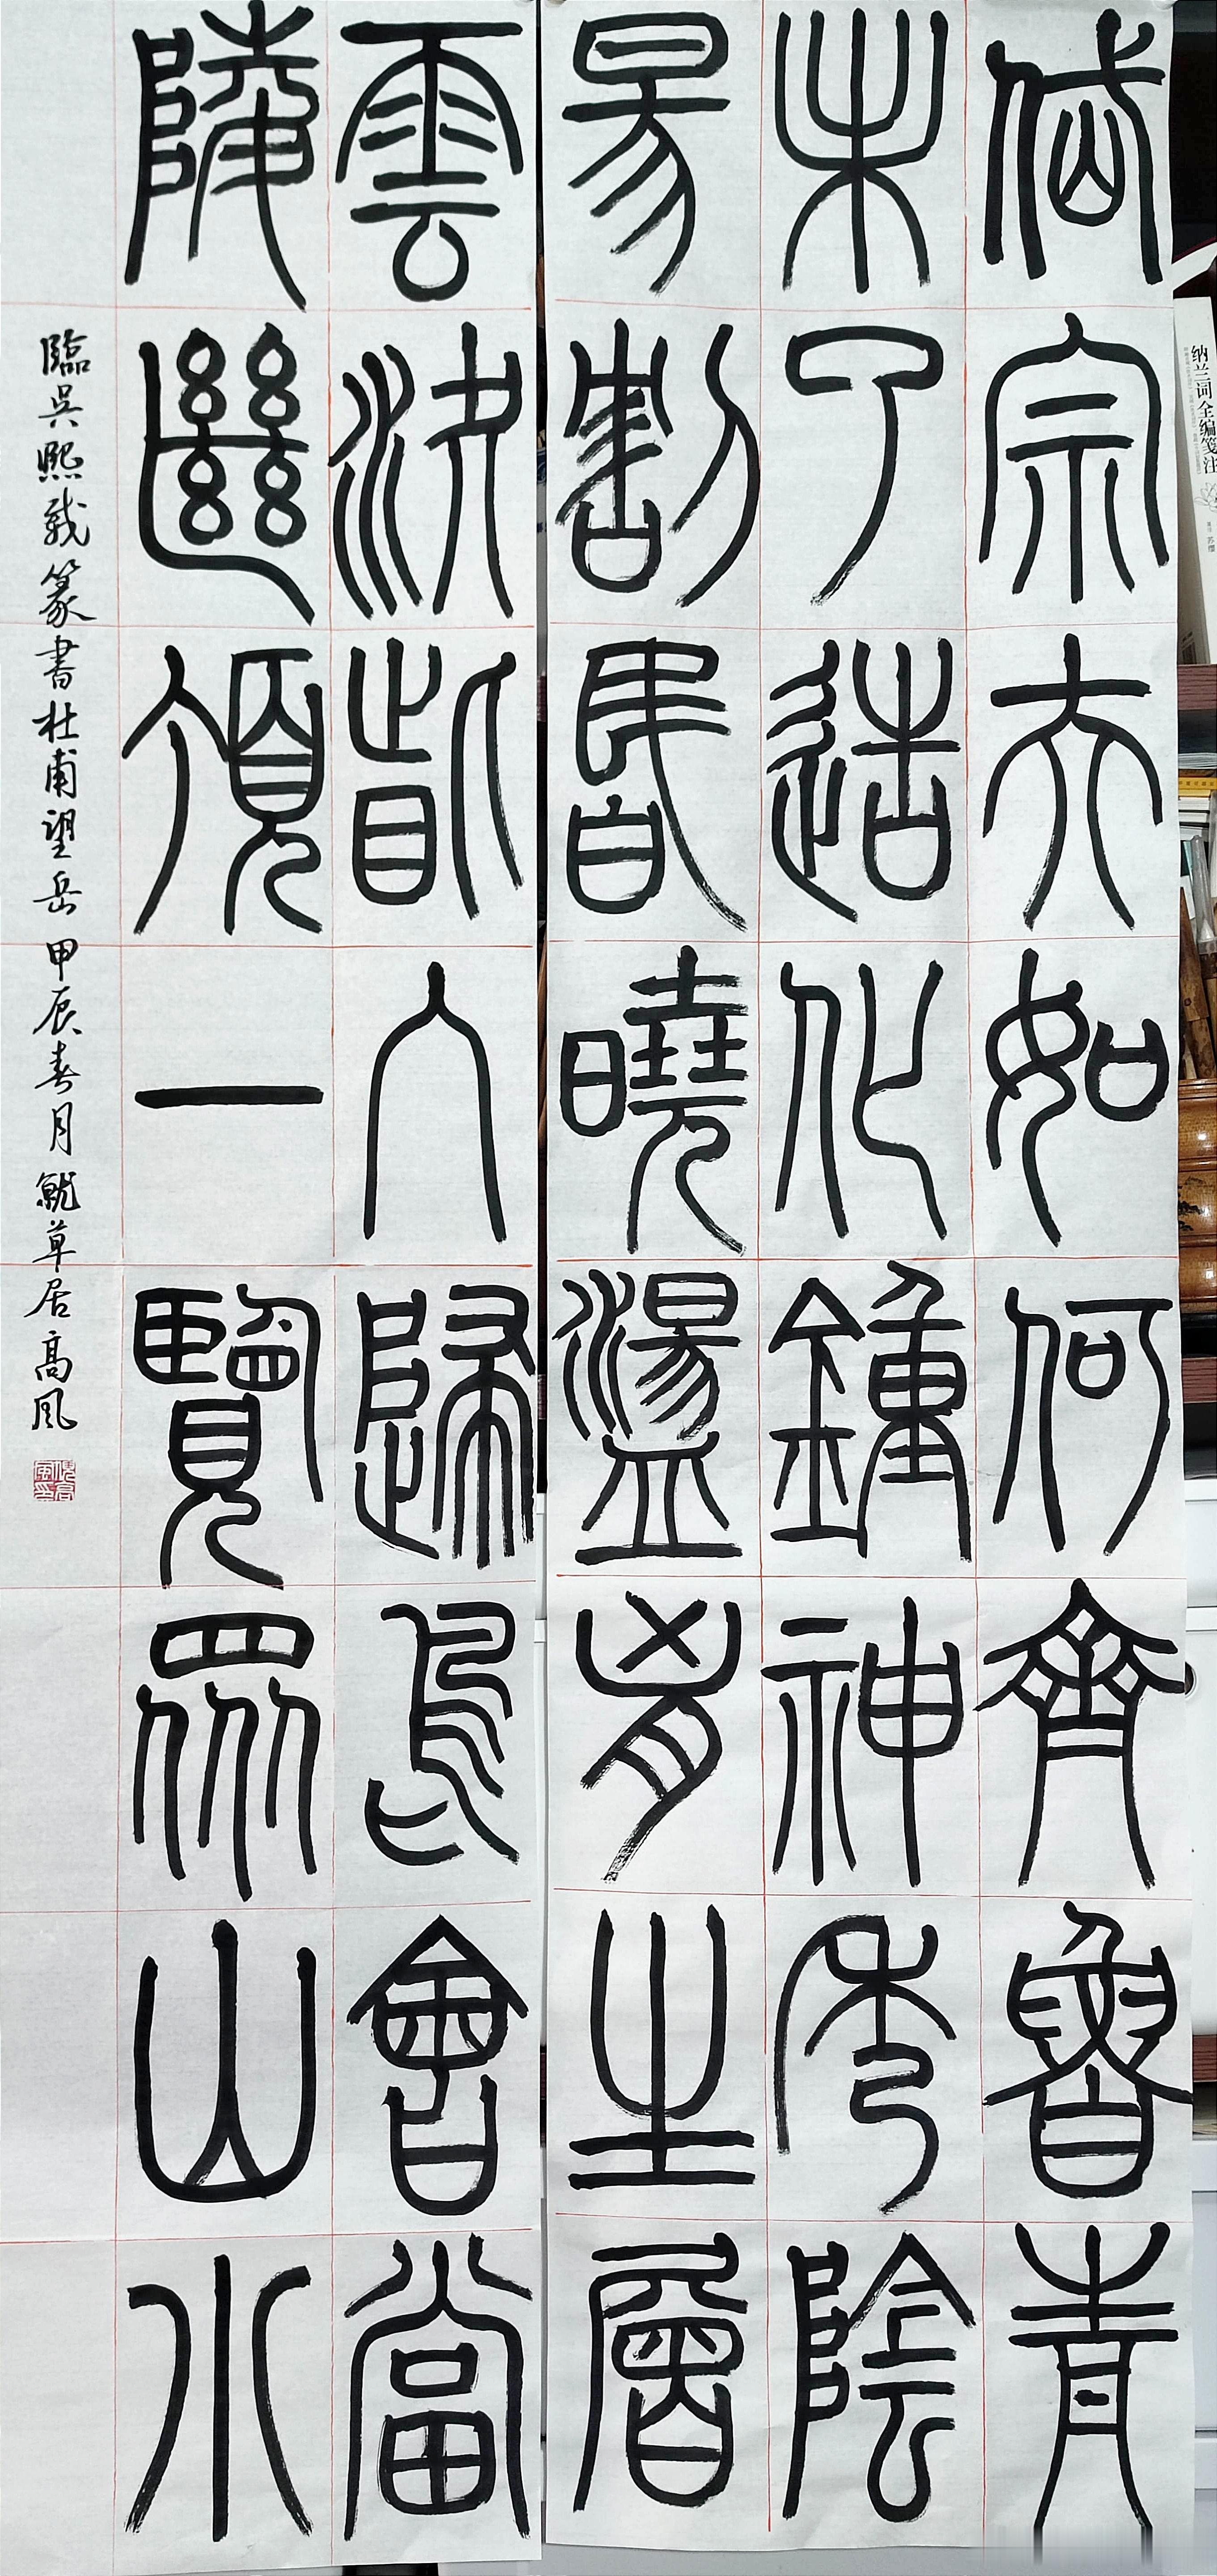 岱宗夫如何齊魯青
未了造化鍾神秀陰
昜割昬曉盪胷生層
雲決眥入歸鳥會當
陵㡭頂一覽眾山小
臨吳熙載篆書杜甫望岳甲辰春月魷草居高風
纳兰词全编笺注
苏缨